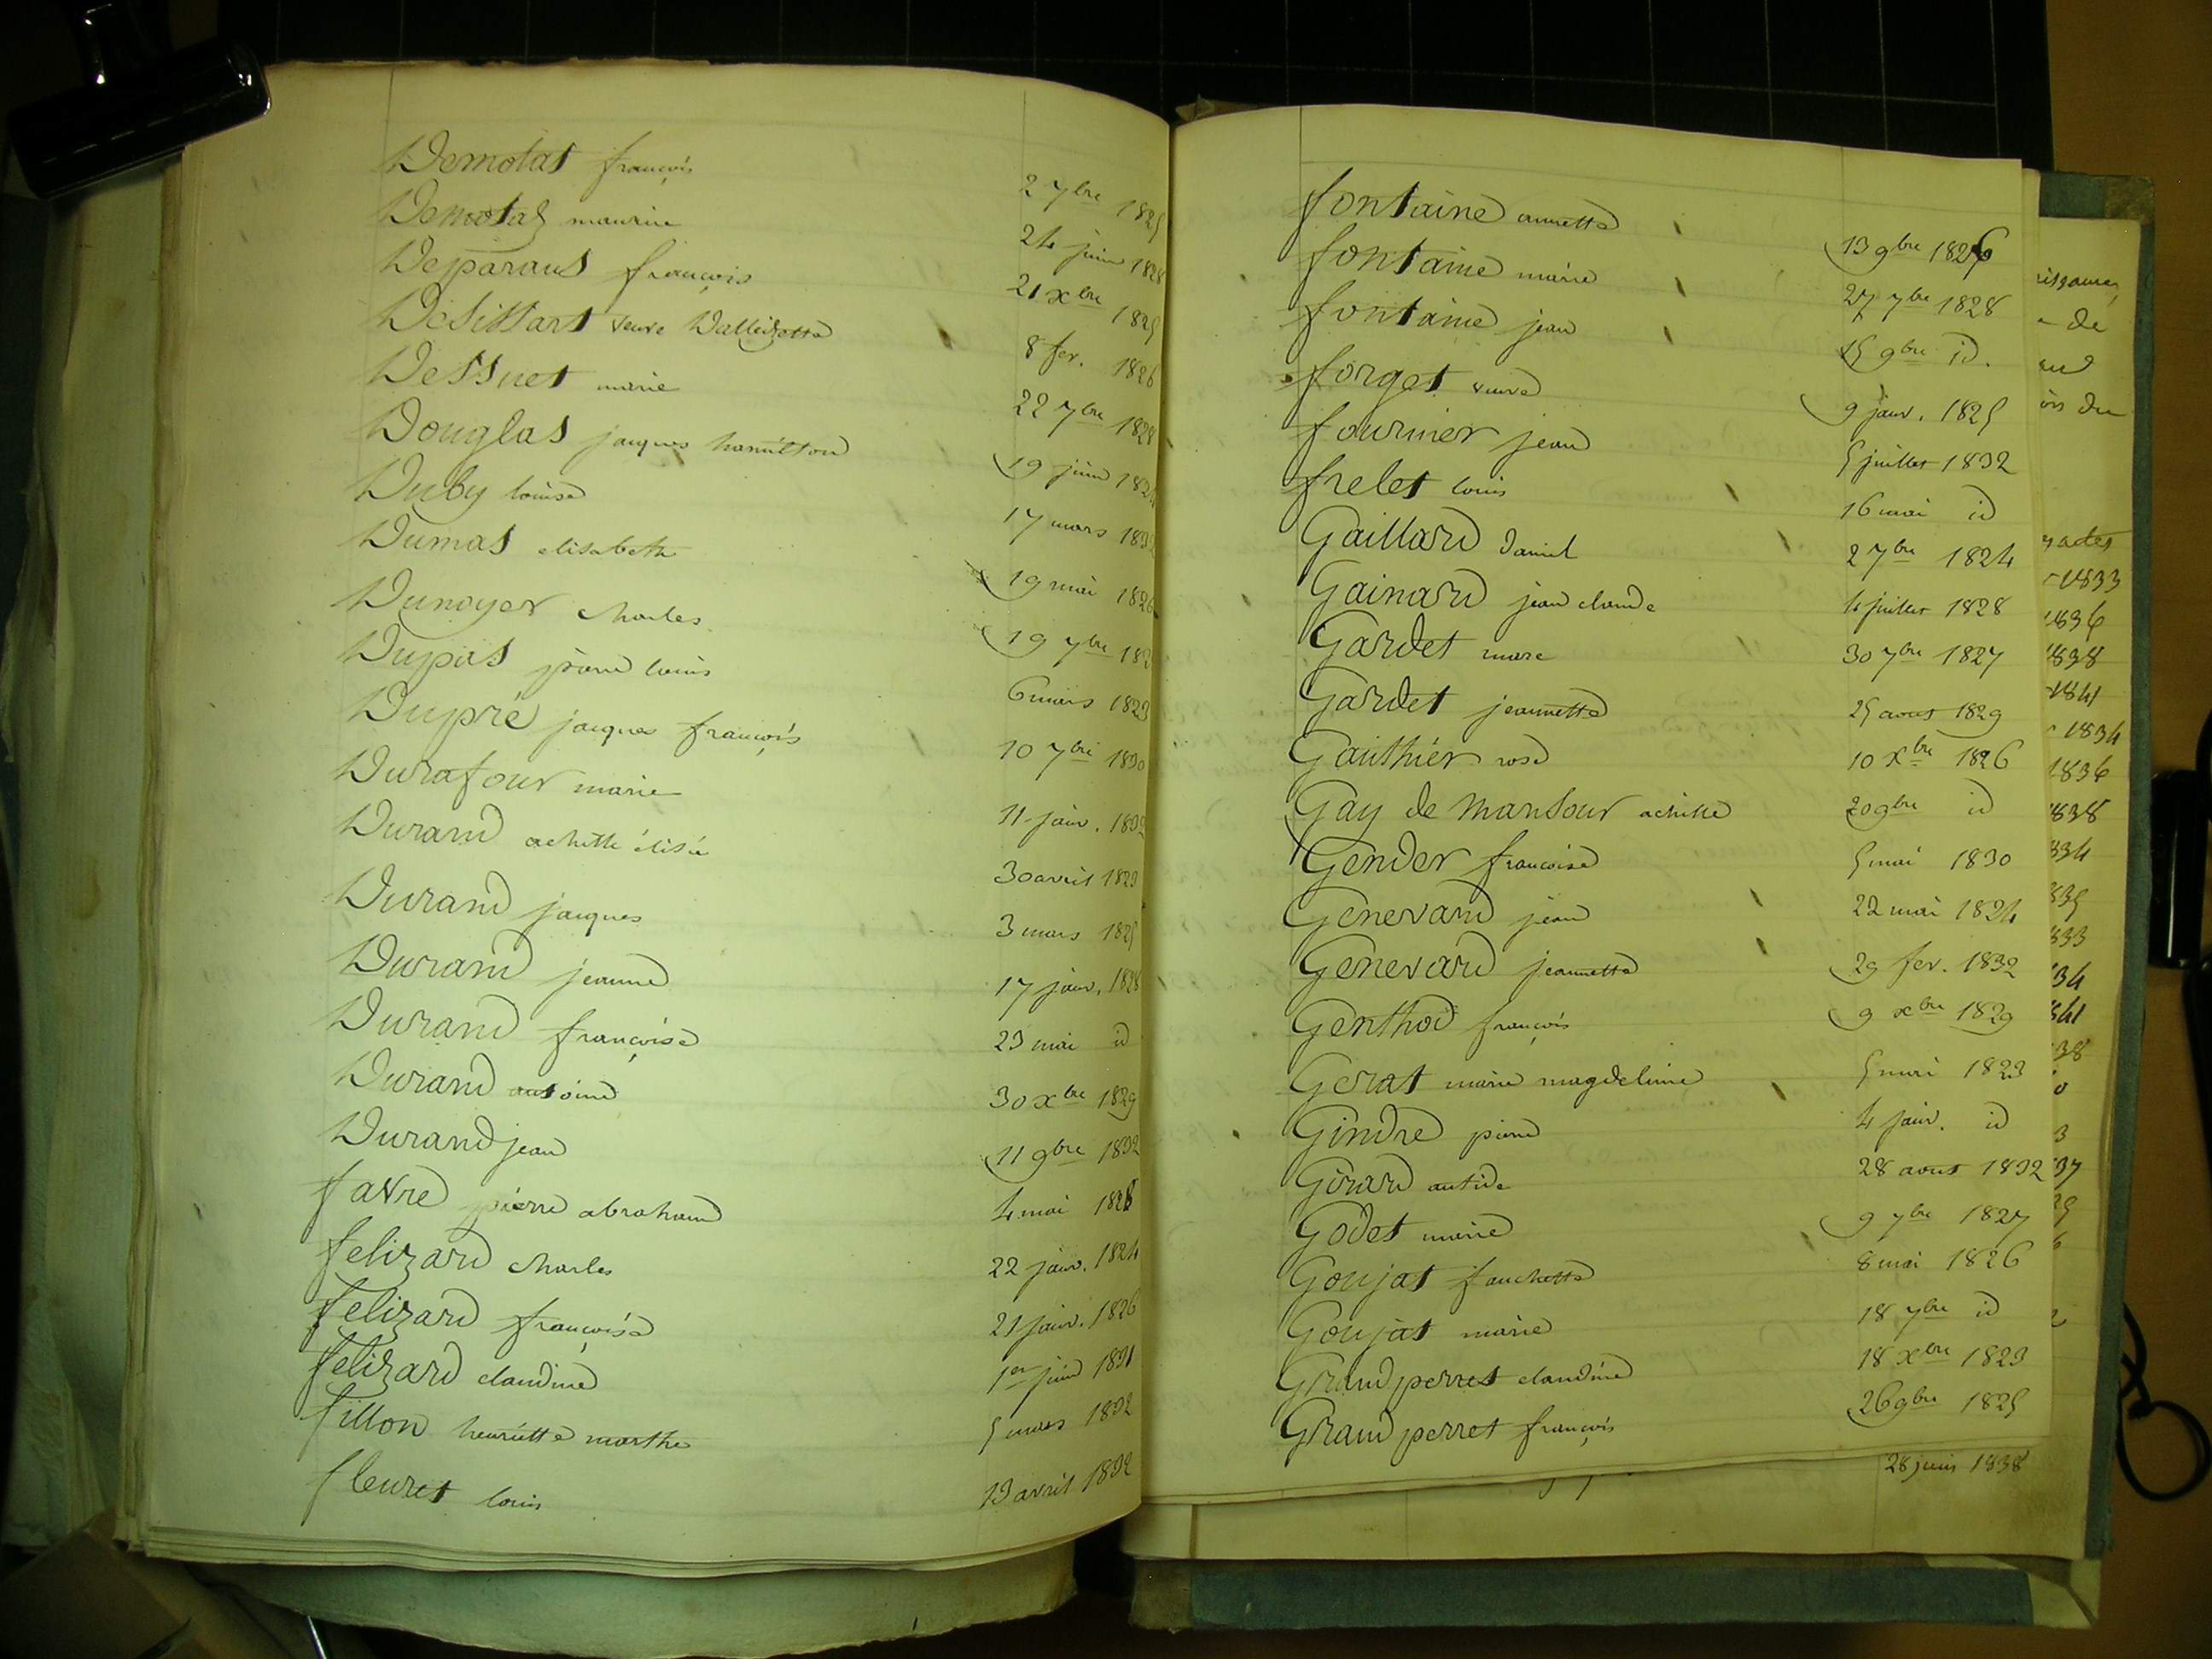 Demolas françois 2 7bre 1825
Demolas maurice 24 juin 1828
Deparaus françois 21 xbre 1825
Desissart veuve Dallizotte 8 fev. 1826
Dessuet marie 22 7bre 1828
Douglas jaques hamilton 19 juin
Duby louise 17 mars
Dumas elisabeth 19 mai 1826
Dunoyer charles 19 7bre
Dupas pierre louis 6 mars 1823
Dupré jaques françois 10 7bre 1830
Durafour marie 11 janv. 1832
Durand achille élisée 30 avril 1823
Durand jaques 3 mars 1825
Durand jeanne 17 janv. 1828
Durand françoise 23 mai id
Durand antoine 30 xbre 1829
Durand jean 11 9bre 1832
favre pierre abraham 4 mai
felizard charles 22 janv. 1824
felizard françoise 21 janv. 1826
felizard claudine 1er juin 1831
fillon henriette marthe 5 mars 1832
fleuret louis 13 avril 1832
fontaine annette 13 9bre 1826
fontaine marie 27 7bre 1828
fontaine jean 15 9bre id.
forget veuve 9 janv. 1825
fournier jean 5 juillet 1832
frelet louis 16 mai id
Gaillard Daniel 2 7bre 1824
Gainard jean claude 4 juillet 1828
Gardet marc 30 7bre 1827
Gardet jeannette 25 aout 1829
Gauthier rose 10 Xbre 1826
Gay de Mansour achille 20 9bre id
Gender françoise 5 mai 1830
Genevard jean 22 mai 1824
Genevard jeannette 29 fev. 1832
Genthod françois 9 xbre 1829
Gerat marie magdeleine 5 mai 1823
Gindre pierre 4 janv. id
Girard antide 28 aout 1832
Godet marie 9 7bre 1827
Goujat fanchette 8 mai 1826
Goujat marie 18 7bre id
Grand perret claudine 18 xbre 1823
Grand perret françois 26 9bre 1825
28 juin 1838
de
du
actes
1833
1836
1838
1841
1834
1836
1838